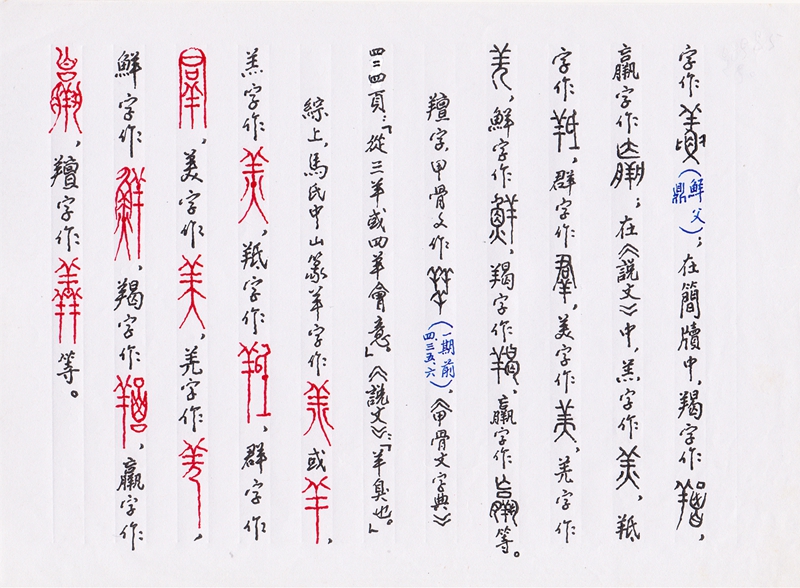 字作（鮮父鼎）；在簡牘中，羯字作，
羸字作；在《說文》中，羔字作，羝
字作，群字作，美字作，羌字作
，鮮字作，羯字作，羸字作等。
羶字，甲骨文作（一期前四.三五.六），《甲骨文字典》
四二四頁：「從三羊或四羊會意。」《說文》：「羊臭也。」
綜上，馬氏中山篆羊字作或，
羔字作，羝字作，群字作
，美字作，羌字作，
鮮字作，羯字作，羸字作
，羶字作等。